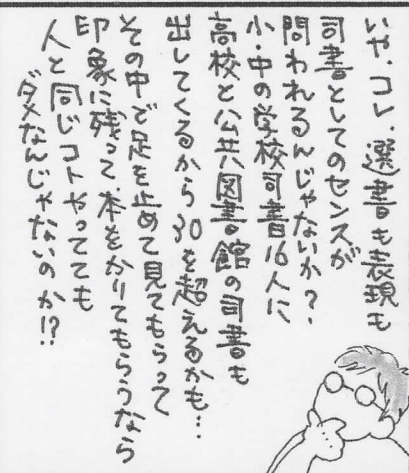 いや、コレ、選書も表現も
司書としてのセンスが
問われるんじゃないか?、
小・中の学校司書16人に
高校と公共図書館の司書も
出してくるから30を超えるかも…
その中で足を止めて見てもらって
印象に残って、本をかりてもらうなら
人と同じコトやってても
ダメなんじゃないのか!?